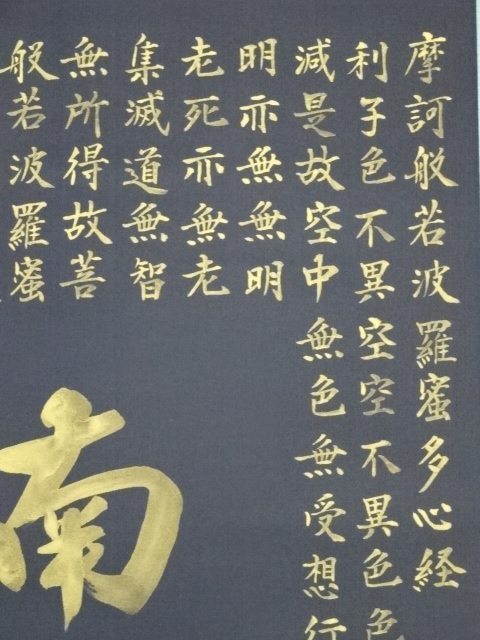 摩訶般若波羅蜜多心経
利子色不異空空不異色色
減是故空中無色無受想行
明亦無無明
老死亦無無老
集滅道無智
無所得故菩
般若波羅蜜
南